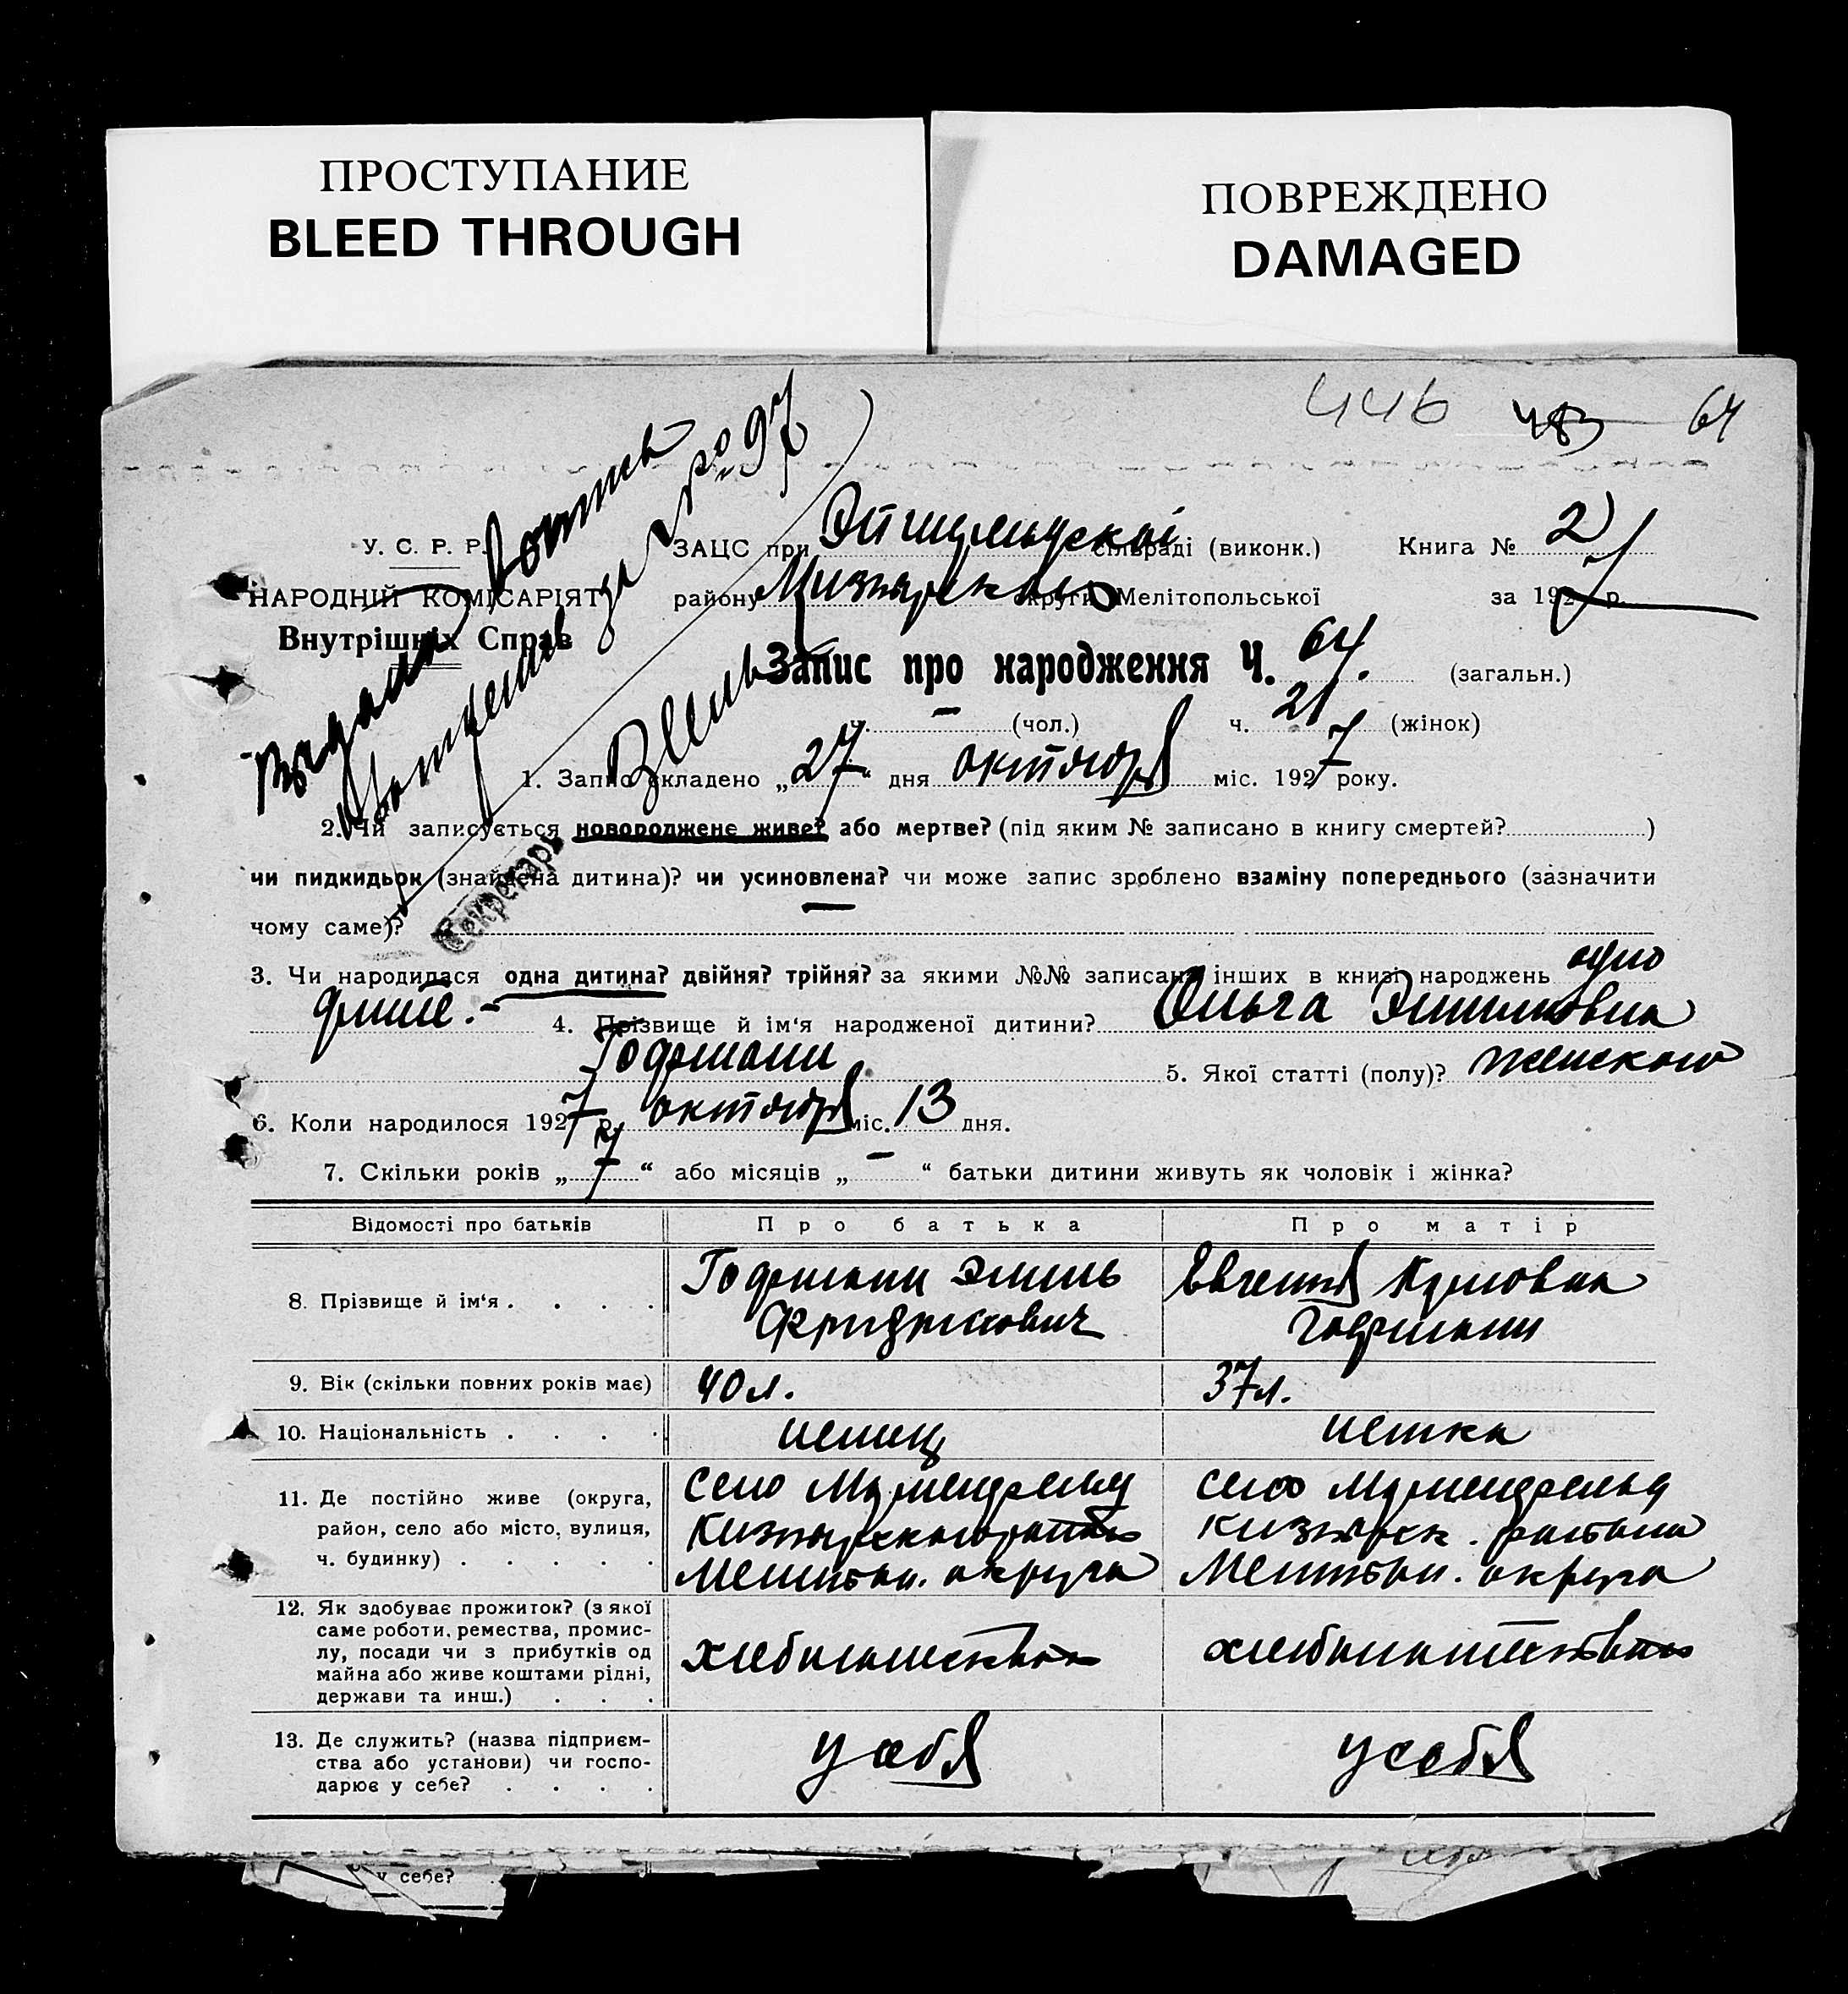 ПРОСТУПАНИЕ
BLEED THROUGH
ПОВРЕЖДЕНО
DAMAGED
446 483 64
№ 97
У. С. Р. Р.
НАРОДНІЙ КОМІСАРІЯТ
Внутрішніх Справ
ЗАЦС при сільраді (виконк.) Книга № 2
району округи Мелітопольської за 1927 р.
Запис про народження Ч. 64. (загальн.)
ч. — (чол.) ч. 21 (жінок)
1. Запис складено „27“ дня октября міс. 1927 року.
2. Чи записується новороджене живе? або мертве? (під яким № записано в книгу смертей? )
чи пидкидьок (знайдена дитина)? чи усиновлена? чи може запис зроблено взаміну попереднього (зазначити
чому саме)? —
Секретарь
3. Чи народилася одна дитина? двійня? трійня? за якими №№ записана інших в книзі народжень одно
дитё.- 4. Прізвище й ім‘я народженої дитини? Ольга Эмильовна
5. Якої статті (полу)? женского
6. Коли народилося 1927 р. октября міс. 13 дня.
7. Скільки років „7“ або місяців „—“ батьки дитини живуть як чоловік і жінка?
Відомості про батьків Про батька Про матір
8. Прізвище й ім‘я . . . . Эмиль Евгения
9. Вік (скільки повних років має) 40 л. 37 л.
10. Національність . . . . немец немка
11. Де постійно живе (округа, село село
район, село або місто, вулиця, района
ч. будинку) . . . . . Мелитоп. округа Мелитоп. округа
12. Як здобуває прожиток? (з якої
саме роботи, ремества, промис-
лу, посади чи з прибутків од
майна або живе коштами рідні,
держави та инш.) . . .
13. Де служить? (назва підприєм-
ства або установи) чи госпо-
дарює у себе? . . . . у себя у себя
у себе?